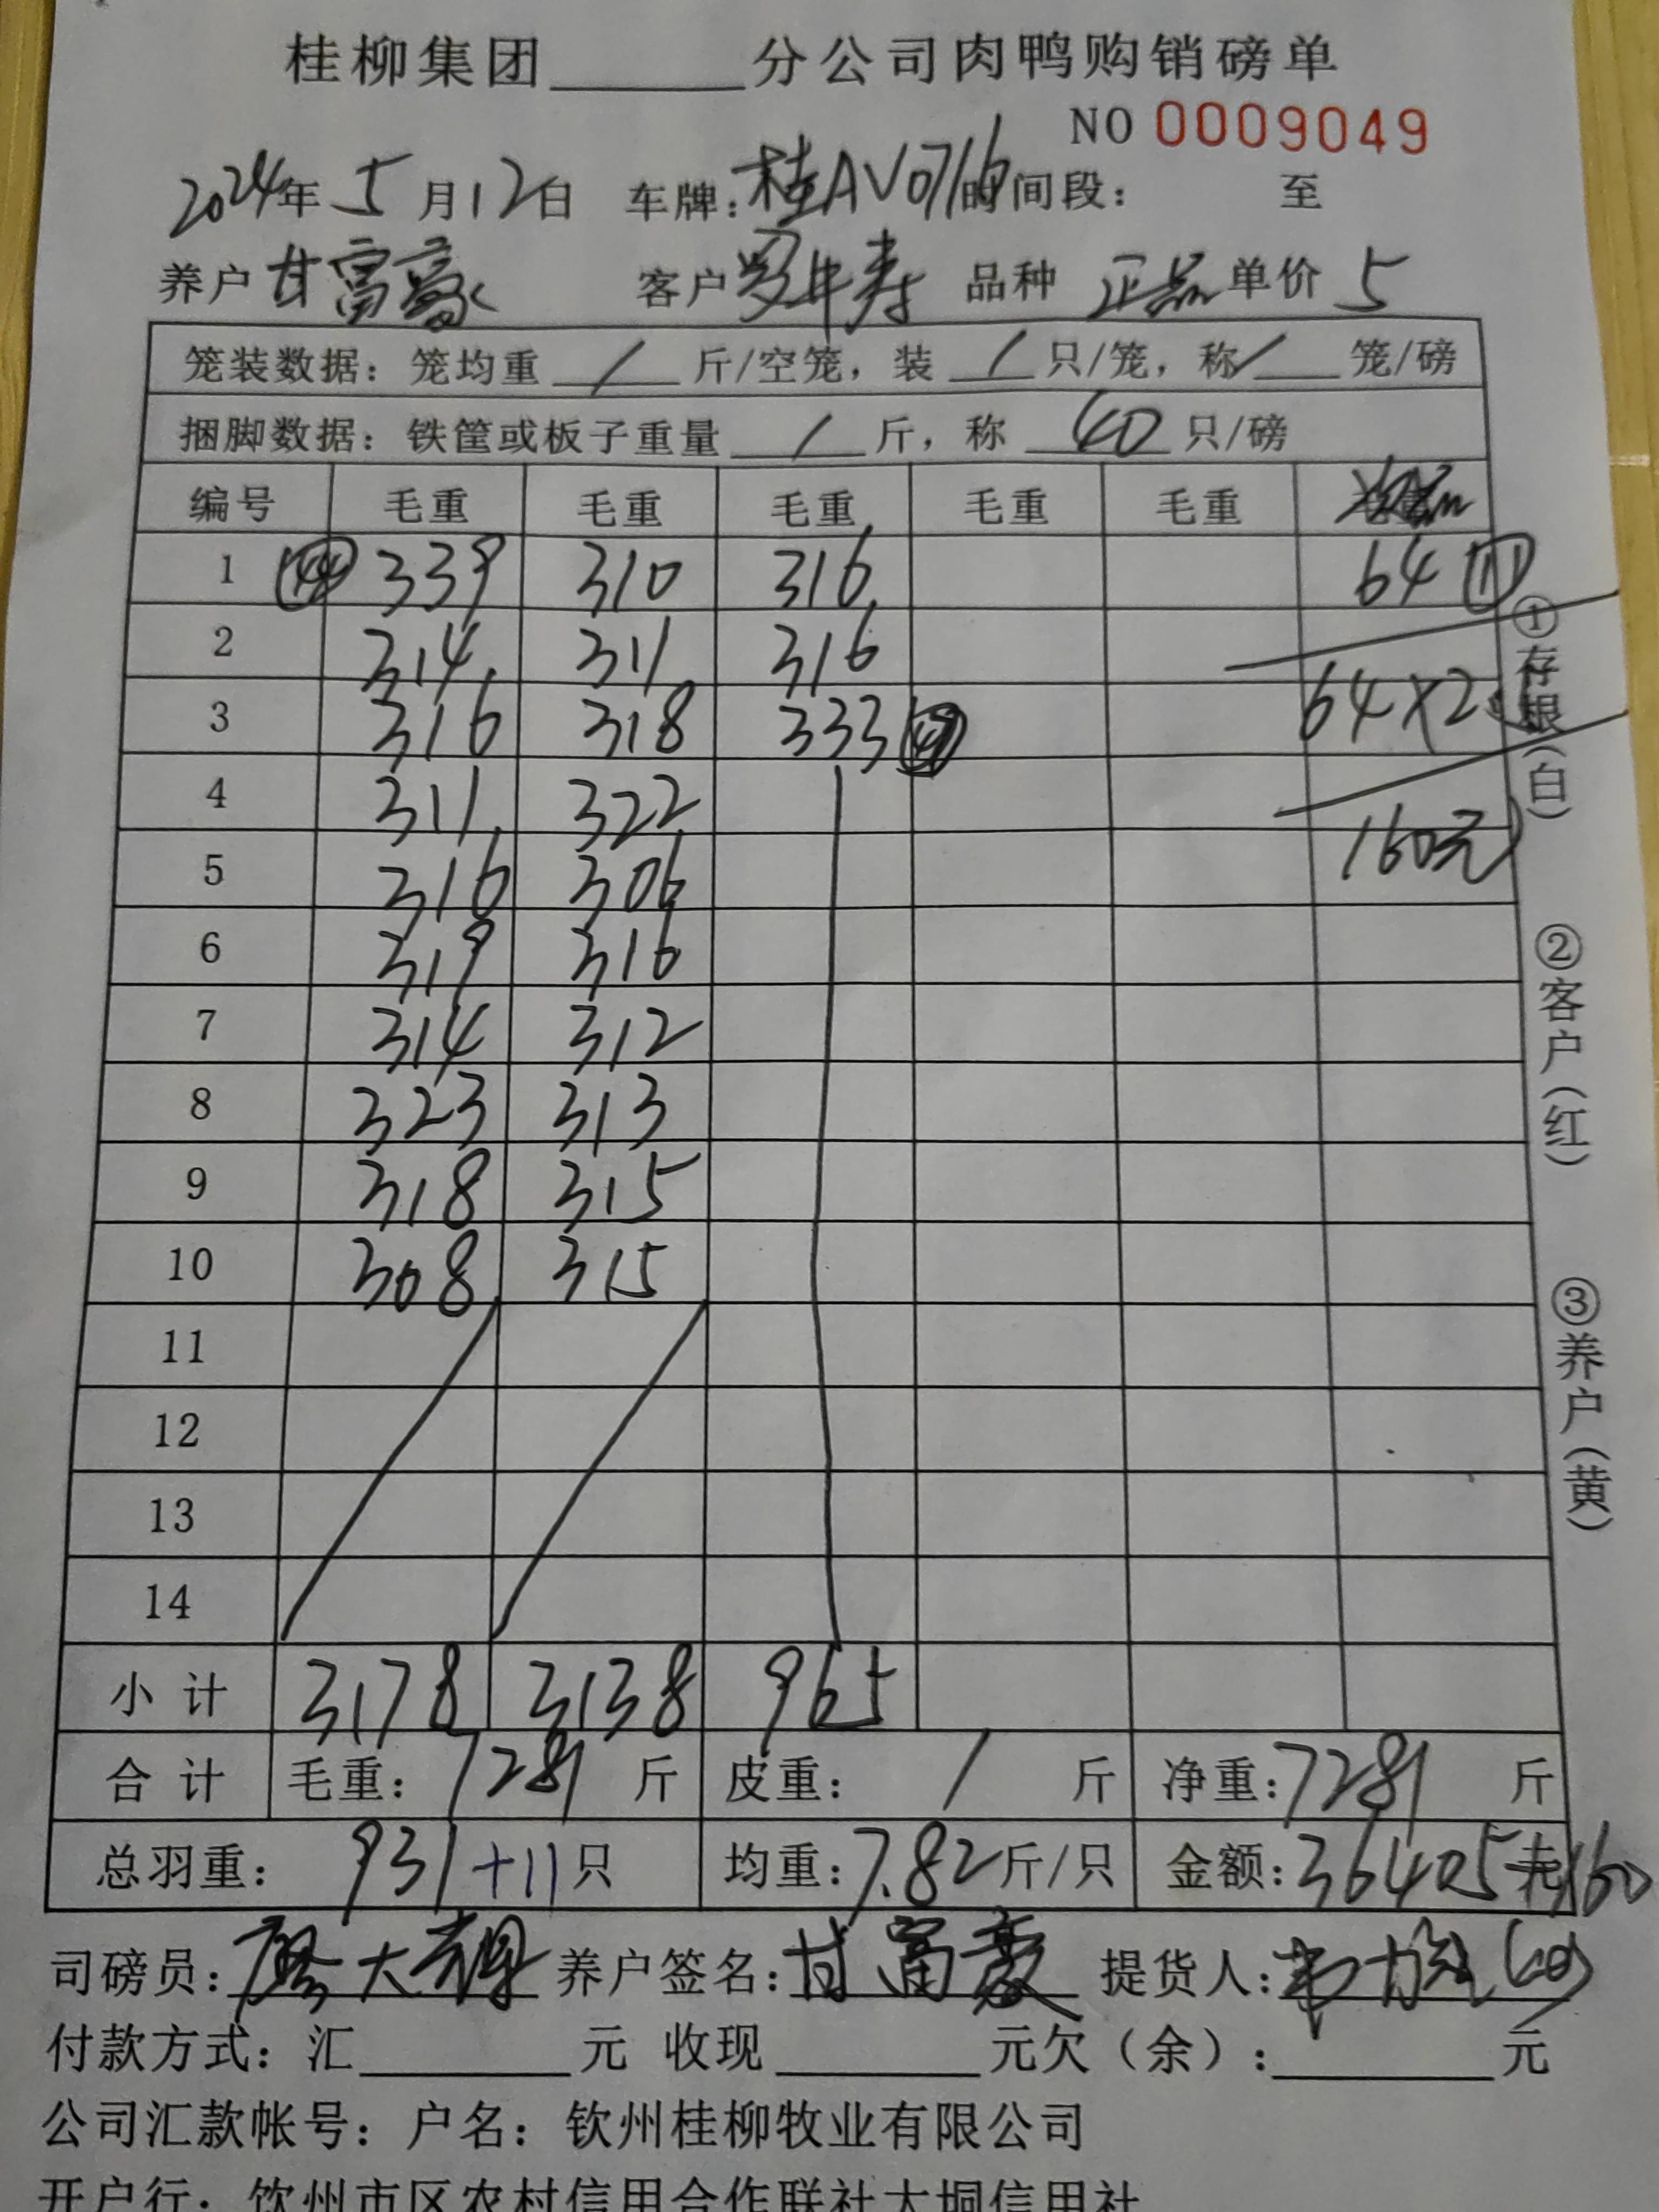 桂柳集团______分公司肉鸭购销磅单
NO 0009049
2024年 5月12日 车牌:桂AV0716 时间段: 至
养户 甘富豪 客户 罗年寿 品种 正品 单价 5
笼装数据: 笼均重 / 斤/空笼, 装 / 只/笼, 称 / 笼/磅
捆脚数据: 铁筐或板子重量 / 斤, 称 40 只/磅
编号 毛重 毛重 毛重 毛重 毛重
1 339 310 316 64 ⑪
2 314 311 316
3 316 318 333 64×2.5
4 311 322
5 316 306 160元
6 319 316
7 314 312
8 323 313
9 318 315
10 308 315
11
12
13
14
小计 3178 3138 965
合计 毛重: 7281 斤 皮重: / 斤 净重: 7281 斤
总羽重: 931+11只 均重: 7.82斤/只 金额: 36405元+160
司磅员: 廖大 养户签名: 甘富豪 提货人:
付款方式: 汇______元 收现______元欠(余):______元
公司汇款帐号: 户名: 钦州桂柳牧业有限公司
开户行: 钦州市区农村信用合作联社大垌信用社
①存根(白)
②客户(红)
③养户(黄)